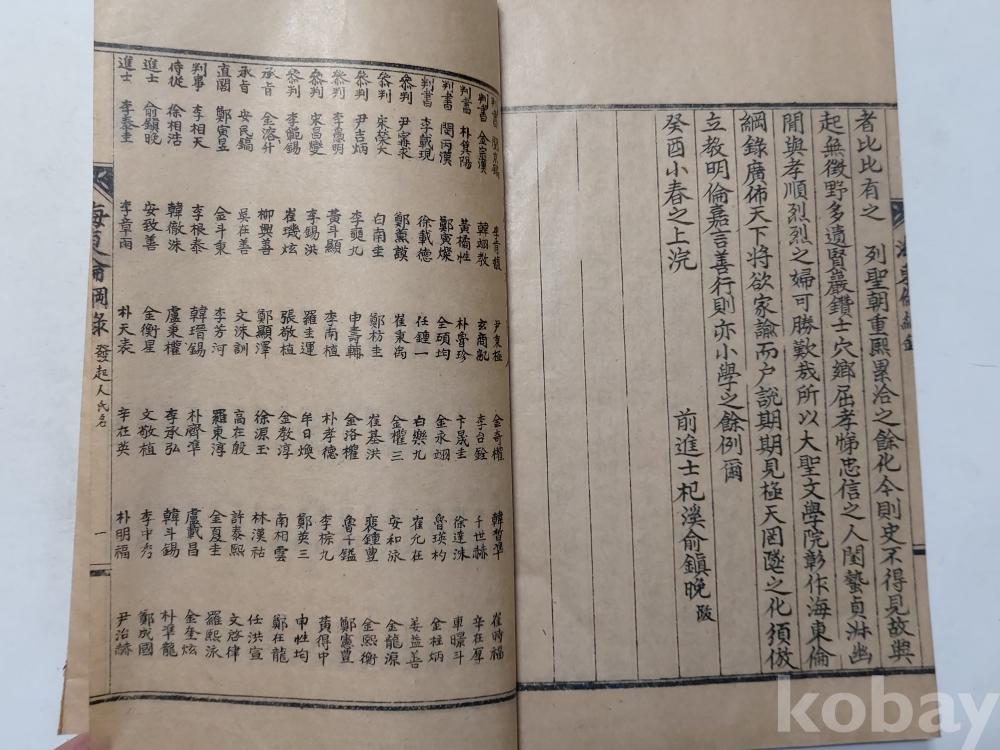 者比比有之 列聖朝重熙累洽之餘化今則史不得見故與
起無徵野多遺賢巖鑽士穴鄉屈孝悌忠信之人閨藝貞淋幽
閒與孝順烈烈之婦可勝歎哉所以大聖文學院彰作海東倫
綱錄廣佈天下將欲家諭而户說期期見極天罔墜之化須倣
立教明倫嘉言善行則亦小學之餘例爾
癸酉小春之上浣
前進士杞溪俞鎭晚 跋
判書 尹東極 金奇權 韓晳準 崔時福
判書 金宗漢 韓翊敎 玄商胤 李台銓 千世赫 辛在厚
判書 朴箕陽 黃橚性 朴膏珍 卞晟圭 徐達洙 車暻斗
判書 閔丙漢 鄭寅燦 全頭均 金永翊 魯瑛杓 金柱炳
判書 李載現 徐載德 任鍾一 白樂九 崔允在 姜益善
叅判 尹甯求 鄭薰謨 崔秉禹 金權三 安和泳 金龍源
叅判 宋榮大 白南圭 鄭枋圭 崔基洪 裵鍾豊 金熙衡
叅判 尹吉炳 李奭九 申壽輔 金洛權 魯千鑑 鄭憲豊
叅判 李意明 黃斗顯 李南植 朴孝德 李棕九 黃得中
叅判 宋昌燮 李錫洪 羅圭運 牟日煥 鄭英三 申性均
叅判 李範錫 崔璣炫 張敬植 金敎淳 南相雲 鄭在龍
承旨 金溶升 柳興善 鄭顯澤 徐源玉 林漢祜 任洪宣
承旨 安民鎬 吳在善 文洙訓 高在殷 許泰熙 文啓律
直閣 鄭寅昱 金斗秉 李芳河 羅東淳 金夏圭 羅熙泳
判事 李相天 李根泰 韓瑨錫 朴齊準 盧載昌 金奎炫
侍從 徐相浩 韓徹洙 盧秉權 李承弘 韓斗錫 朴準龍
進士 俞鎭晚 安致善 金衡星 文敬植 李中秀 鄭成國
進士 李泰圭 李章雨 朴天表 辛在英 朴明福 尹治赫
海東倫綱錄 發起人氏名 一
kobay